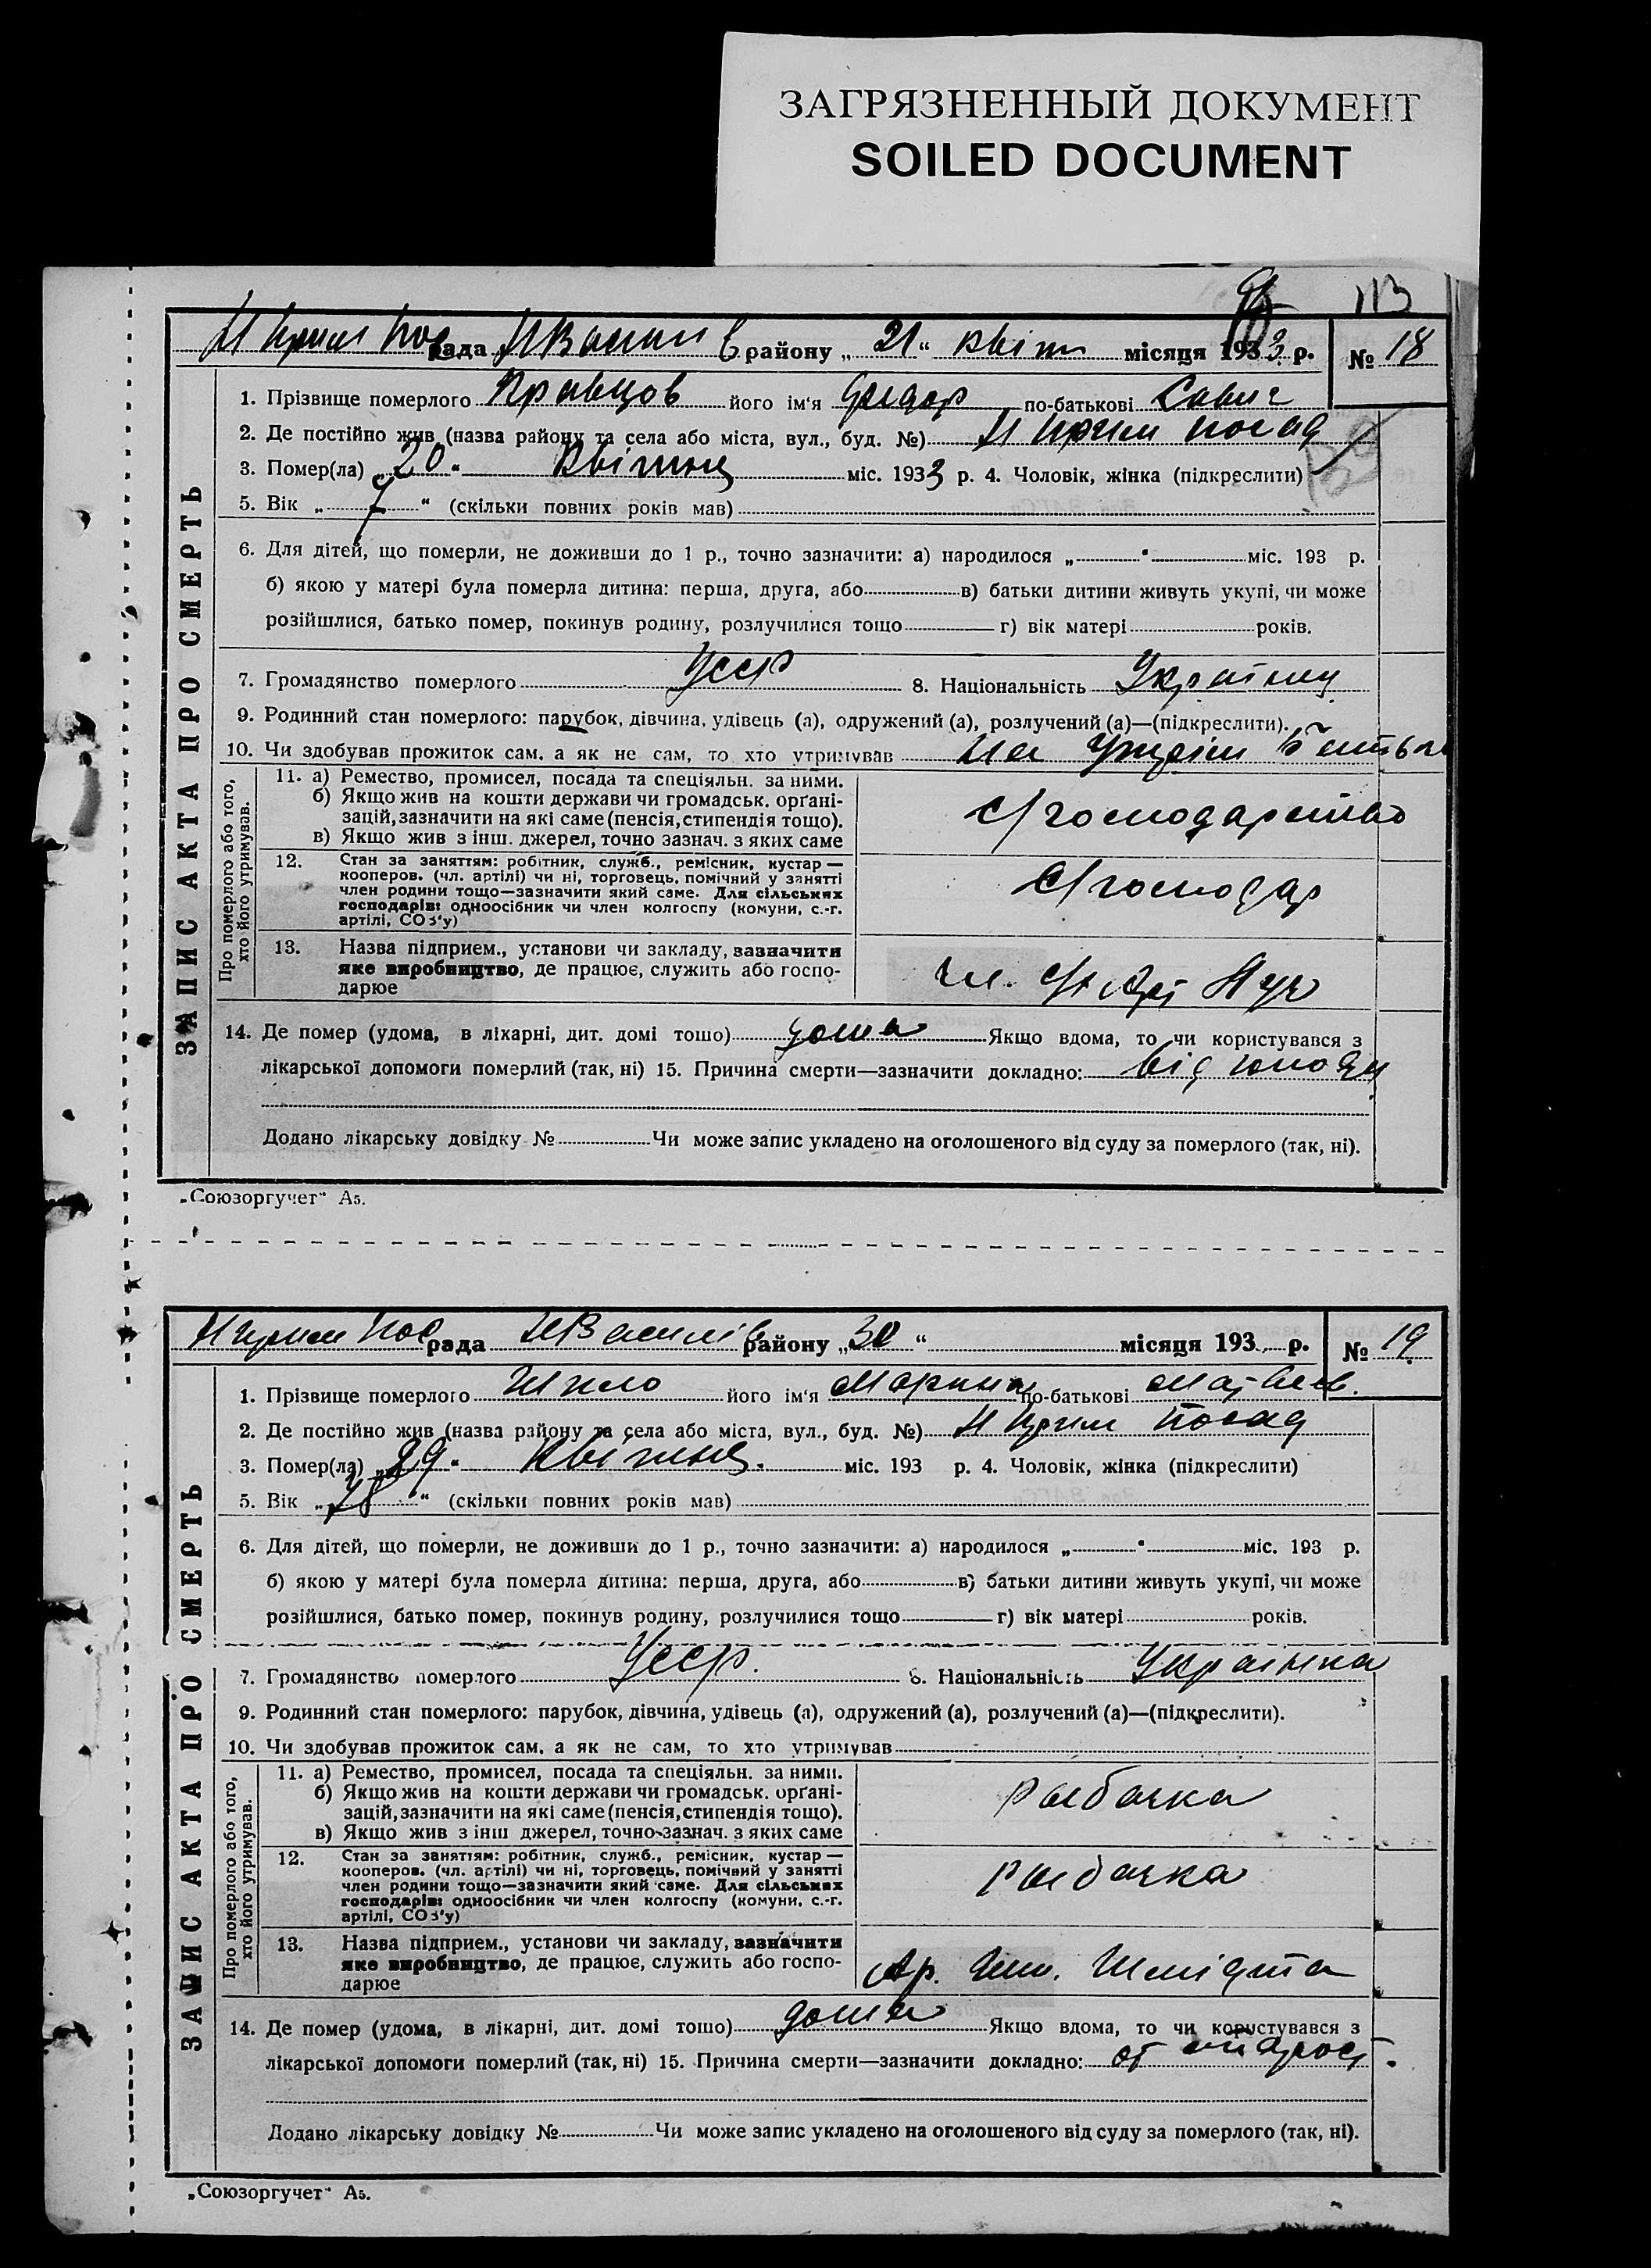 ЗАГРЯЗНЕННЫЙ ДОКУМЕНТ
SOILED DOCUMENT
113
рада району „21“ квітн місяця 1933 р. № 18
ЗАПИС АКТА ПРО СМЕРТЬ
1. Прізвище померлого Кравцов його ім'я Федор по-батькові Савич
2. Де постійно жив (назва району та села або міста, вул., буд. №) посад
3. Помер(ла) „20“ Квітня міс. 1933 р. 4. Чоловік, жінка (підкреслити)
5. Вік „7“ (скільки повних років мав)
6. Для дітей, що померли, не доживши до 1 р., точно зазначити: а) народилося „ “ міс. 193 р.
б) якою у матері була померла дитина: перша, друга, або в) батьки дитини живуть укупі, чи може
розійшлися, батько помер, покинув родину, розлучилися тощо г) вік матері років.
7. Громадянство померлого УССР 8. Національність Українец
9. Родинний стан померлого: парубок, дівчина, удівець (а), одружений (а), розлучений (а)—(підкреслити).
10. Чи здобував прожиток сам, а як не сам, то хто утримував На батьк
Про померлого або того, хто його утримував.
11. а) Ремество, промисел, посада та спеціяльн. за ними.
б) Якщо жив на кошти держави чи громадськ. орґані-
зацій, зазначити на які саме (пенсія, стипендія тощо).
в) Якщо жив з інш. джерел, точно зазнач. з яких саме
с/господарство
12. Стан за заняттям: робітник, служб., ремісник, кустар —
кооперов. (чл. артілі) чи ні, торговець, помічний у занятті
член родини тощо—зазначити який саме. Для сільських
господарів: одноосібник чи член колгоспу (комуни, с.-г.
артілі, СОЗ'у)
с/господар
13. Назва підприєм., установи чи закладу, зазначити
яке виробництво, де працює, служить або госпо-
дарює
14. Де помер (удома, в ліхарні, дит. домі тошо) дома Якщо вдома, то чи користувався з
лікарської допомоги померлий (так, ні) 15. Причина смерти—зазначити докладно: від
Додано лікарську довідку № Чи може запис укладено на оголошеного від суду за померлого (так, ні).
„Союзоргучет“ А5.
рада району „30“ місяця 193 р. № 19
ЗАПИС АКТА ПРО СМЕРТЬ
1. Прізвище померлого Шило його ім'я Марина по-батькові Матвеев.
2. Де постійно жив (назва району та села або міста, вул., буд. №) Посад
3. Помер(ла) „29“ Квітня. міс. 193 р. 4. Чоловік, жінка (підкреслити)
5. Вік „78“ (скільки повних років мав)
6. Для дітей, що померли, не доживши до 1 р., точно зазначити: а) народилося „ “ міс. 193 р.
б) якою у матері була померла дитина: перша, друга, або в) батьки дитини живуть укупі, чи може
розійшлися, батько помер, покинув родину, розлучилися тощо г) вік матері років.
7. Громадянство померлого Усср. 8. Національність Українка
9. Родинний стан померлого: парубок, дівчина, удівець (а), одружений (а), розлучений (а)—(підкреслити).
10. Чи здобував прожиток сам, а як не сам, то хто утримував
Про померлого або того, хто його утримував.
11. а) Ремество, промисел, посада та спеціяльн. за ними.
б) Якщо жив на кошти держави чи громадськ. орґані-
зацій, зазначити на які саме (пенсія, стипендія тощо).
в) Якщо жив з інш джерел, точно зазнач. з яких саме
рыбачка
12. Стан за заняттям: робітник, служб., ремісник, кустар —
кооперов. (чл. артілі) чи ні, торговець, помічний у занятті
член родини тощо—зазначити який саме. Для сільських
господарів: одноосібник чи член колгоспу (комуни, с.-г.
артілі, СОЗ'у)
рыбачка
13. Назва підприєм., установи чи закладу, зазначити
яке виробництво, де працює, служить або госпо-
дарює
Ар. Шмідта
14. Де помер (удома, в лікарні, дит. домі тошо) дома Якщо вдома, то чи користувався з
лікарської допомоги померлий (так, ні) 15. Причина смерти—зазначити докладно: от
Додано лікарську довідку № Чи може запис укладено на оголошеного від суду за померлого (так, ні).
„Союзоргучет“ А5.